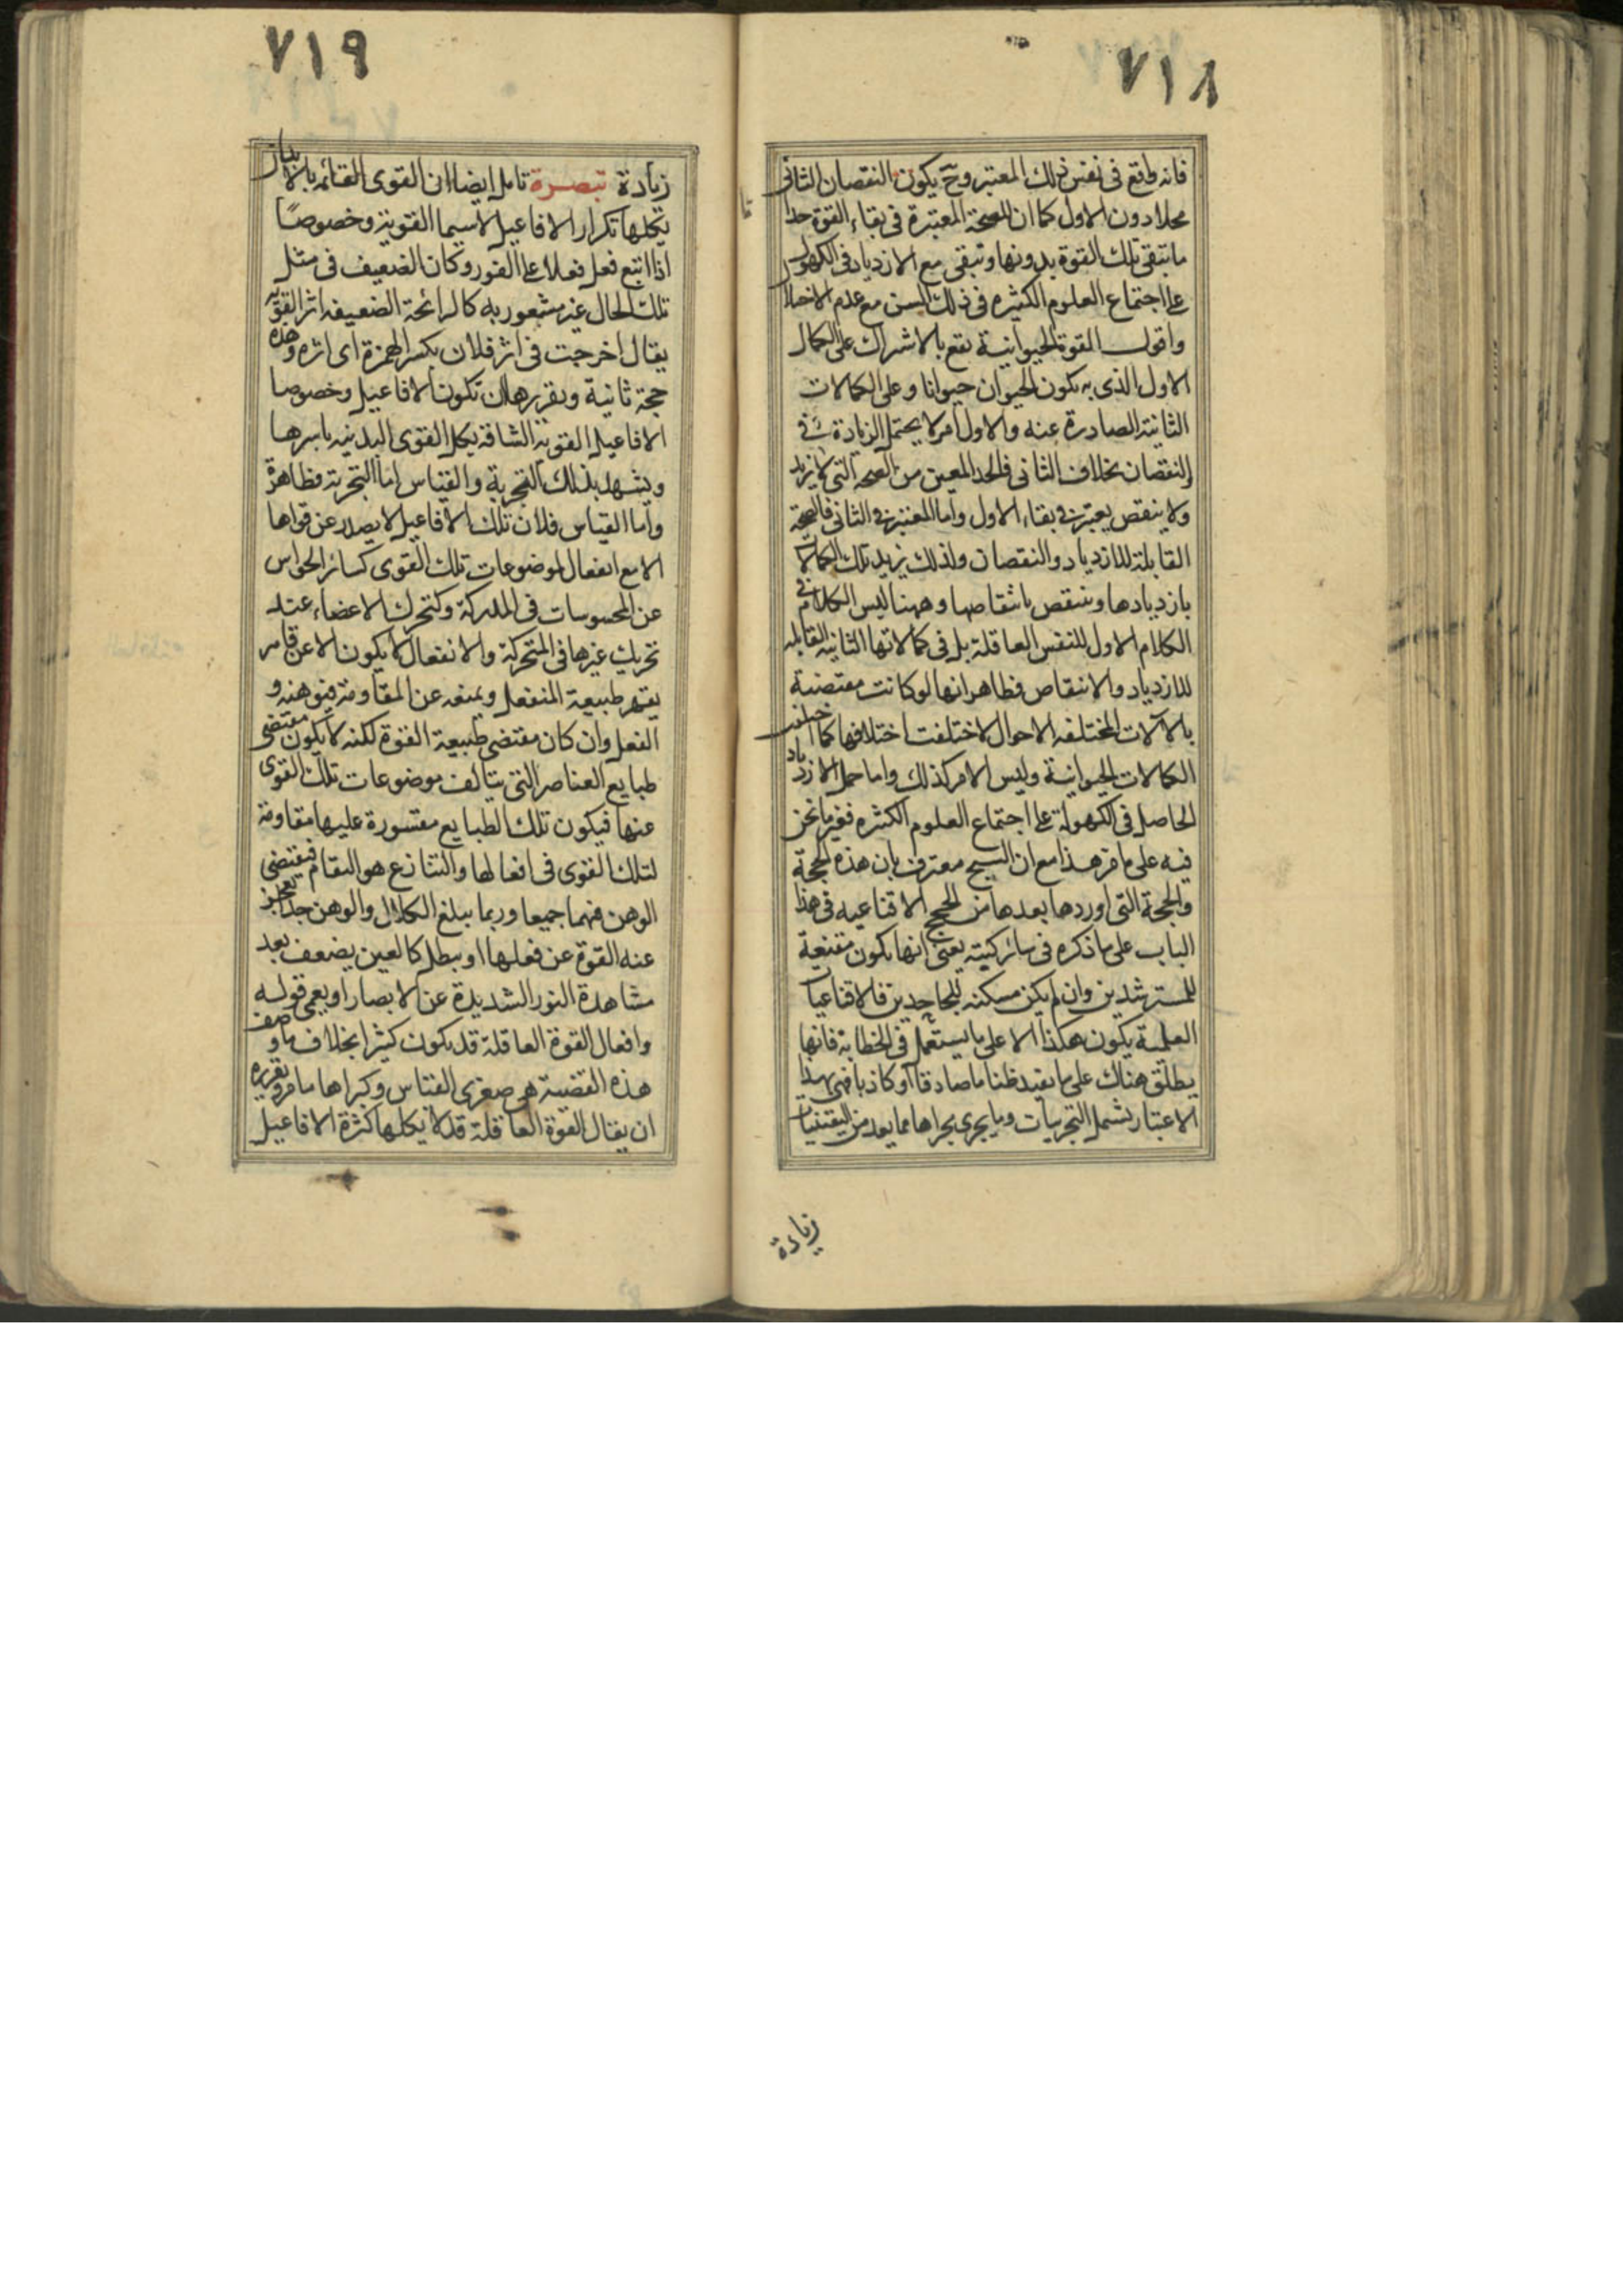 ٧١٨
فانه واقع في نفس ذلك المعتبر وح يكون النقصان الثاني
محلا دون الاول كما ان للصحة المعتبرة في بقاء القوة حدا
ما تبقى تلك القوة بدونها وتبقى مع الازدياد في الكهول
على اجتماع العلوم الكثيره في ذلك السن مع عدم الاختلا
واقول القوة الحيوانية تقع بالاشراك على الكمال
الاول الذي به يكون الحيوان حيوانا وعلى الكمالات
الثانية الصادرة عنه والاول امر لا يحتمل الزيادة
والنقصان بخلاف الثاني فالحد المعين من الصحه التي لا يزيد
ولا ينقص يعتبر في بقاء الاول واما المعتبر في الثاني فالصحة
القابلة للازدياد والنقصان ولذلك يزيد تلك الكمالات
بازديادها وينتقص بانتقاصها وههنا ليس الكلام في
الكلام الاول للنفس العاقلة بل في كمالاتها الثانية القابله
للازدياد والانتقاص فظاهر انها لو كانت مقتضية
بالآلات المختلفه الاحوال لاختلفت اختلافها كما اختلفت
الكمالات الحيوانية وليس الامر كذلك واما حمل الازدياد
الحاصل في الكهولة على اجتماع العلوم الكثيره فغير ما نحن
فيه على ما مر هذا مع ان الشيخ معترف بان هذه الحجة
والحجة التي اوردها بعدها من الحجج الاقناعيه في هذا
الباب على ما ذكره في سائر كتبه يعني انها يكون مقنعة
للمسترشدين وان لم يكن مسكته للجاحدين فالاقناعيات
العلمية يكون هكذا لا على ما يستعمل في الخطابة فانها
يطلق هناك على ما يفيد ظنا ما صادقا او كاذبا فهي بهذا
الاعتبار يشمل التجربيات وما يجري مجراها مما يعد من اليقينيات
زيادة
٧١٩
زيادة تبصرة تامل ايضا ان القوى القائمه بالابدان
يكلها تكرار الافاعيل لا سيما القوية وخصوصًا
اذا اتبع فعل فعلا على الفور وكان الضعيف في مثل
تلك الحال غير مشعور به كالرائحة الضعيفه اثر القويه
يقال خرجت في اثر فلان بكسر الهمزة اى اثره وهذه
حجة ثانية وتقريرها ان تكون الافاعيل وخصوصا
الافاعيل القوية الشاقة يكل القوى البدنيه باسرها
ويشهد بذلك التجربة والقياس اما التجربة فظاهرة
واما القياس فلان تلك الافاعيل لا يصدر عن قواها
الا مع انفعال لموضوعات تلك القوى كسائر الحواس
عن المحسوسات في المدركة وكتحرك الاعضاء عند
تحريك غيرها في المتحركة والانفعال لا يكون الا عن قاهر
يقهر طبيعة المنفعل ويمنعه عن المقاومة فيوهنه و
الفعل وان كان مقتضى طبيعة القوة لكنه لا يكون مقتضى
طبايع العناصر التي يتالف موضوعات تلك القوى
عنها فيكون تلك الطبايع مقسورة عليها مقاومة
لتلك القوى في افعالها والتنازع هو التقاوم فيقتضى
الوهن فيهما جميعا وربما يبلغ الكلال والوهن حدا يعجز
عنه القوة عن فعلها او يبطل كالعين يضعف بعد
مشاهدة النور الشديدة عن الابصار او يعمى قوله
وافعال القوة العاقلة قد يكون كثيرا بخلاف ما وصف
هذه القضية هي صغرى القياس وكبراها ما مر وتقريره
ان يقال القوة العاقلة قد لا يكلها كثرة الافاعيل